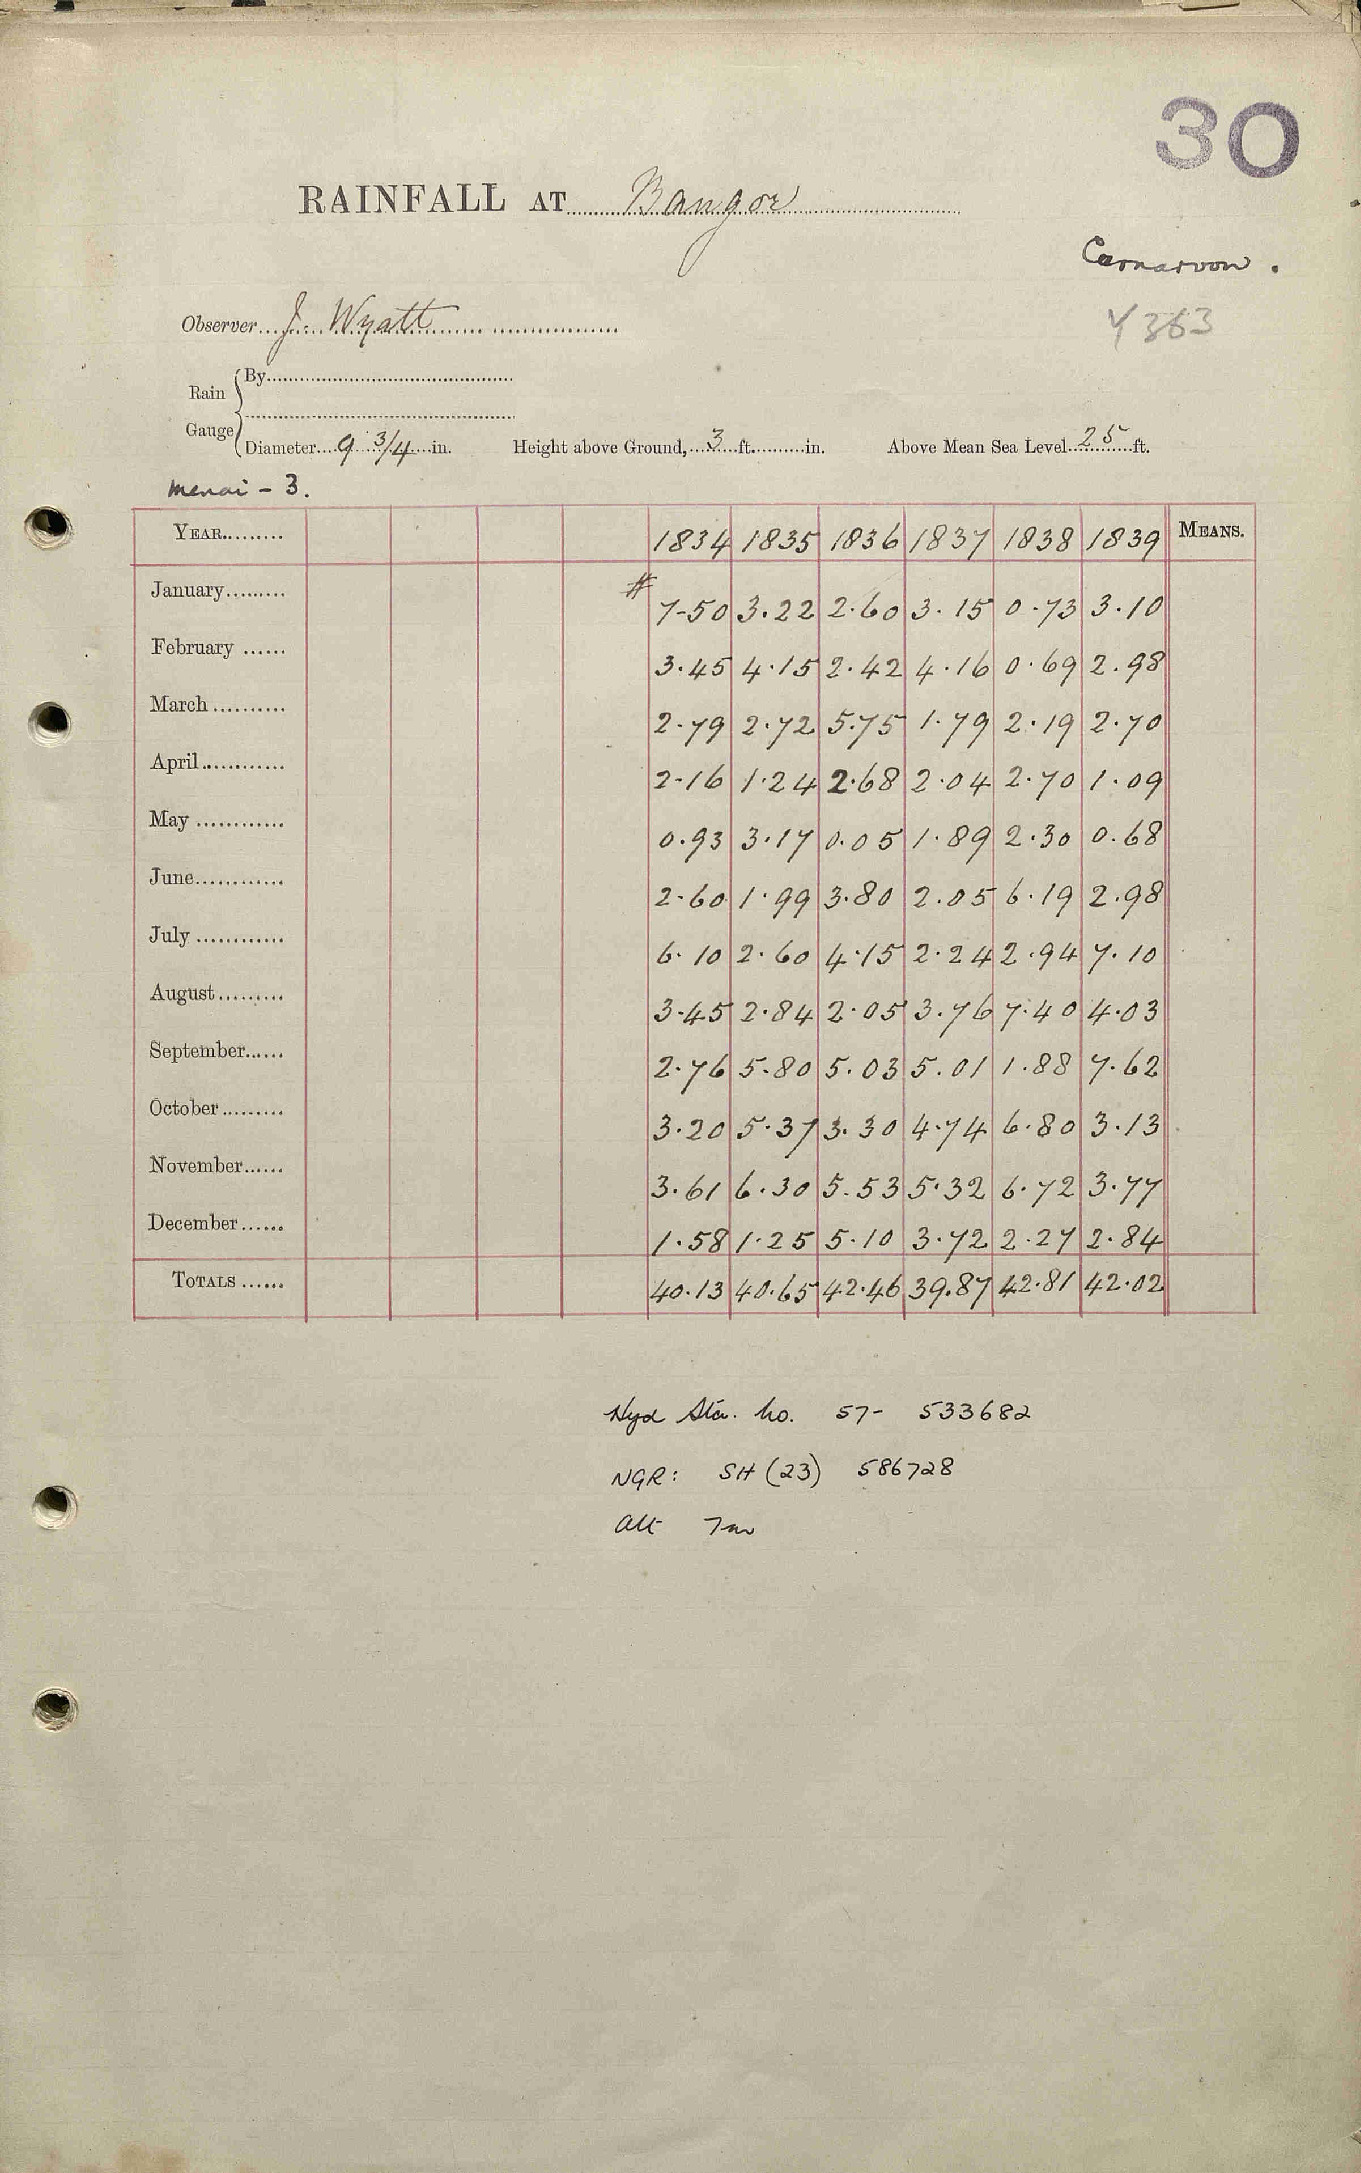 30
RAINFALL AT Bangor
Carnarvon.
Observer J. Wyatt
Y 363
Rain Gauge { By
Diameter 9 3/4 in. Height above Ground, 3 ft. in. Above Mean Sea Level 25 ft.
Menai - 3.
YEAR 1834 1835 1836 1837 1838 1839 MEANS.
January # 7.50 3.22 2.60 3.15 0.73 3.10
February 3.45 4.15 2.42 4.16 0.69 2.98
March 2.79 2.72 5.75 1.79 2.19 2.70
April 2.16 1.24 2.68 2.04 2.70 1.09
May 0.93 3.17 0.05 1.89 2.30 0.68
June 2.60 1.99 3.80 2.05 6.19 2.98
July 6.10 2.60 4.15 2.24 2.94 7.10
August 3.45 2.84 2.05 3.76 7.40 4.03
September 2.76 5.80 5.03 5.01 1.88 7.62
October 3.20 5.37 3.30 4.74 6.80 3.13
November 3.61 6.30 5.53 5.32 6.72 3.77
December 1.58 1.25 5.10 3.72 2.27 2.84
TOTALS 40.13 40.65 42.46 39.87 42.81 42.02
Hyd Sta. No. 57- 533682
NGR: SH (23) 586728
Alt 7m